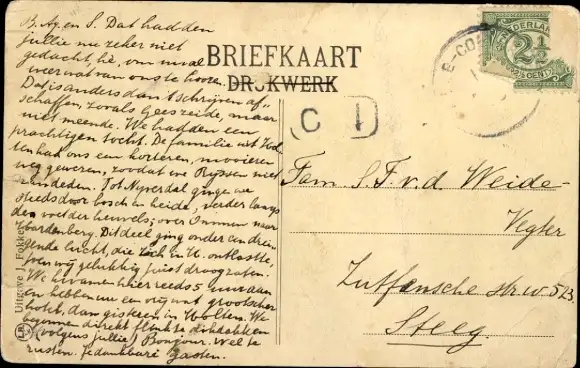 B. Ag. en S. Dat hadden
jullie nu zeker niet
gedacht, hè, om nu al
weer wat van ons te hooren.
Dat is anders dan 't schrijven af"
schaffen, zooals Gees zeide, maar
niet meende. We hadden een
prachtigen tocht. De familie uit
ten had ons een korteren, mooieren
weg gewezen, zoodat we Ryssen niet
aandeden. Tot Nyverdal ginge we
steeds door bosch en heide, verder langs
den voet der heuvels; over Ommen naar
Hardenberg. Dit deel ging onder een drei
gende lucht, die zich in H. ontlastte,
toen wij gelukkig juist droog zaten.
We kwamen hier reeds 5 uur aan
en hebben nu een vrij wat grootscher
hotel, dan gisteren in Holten. We
beginnen direkt flink te
(volgens jullie) Bonjour. Wel te
rusten. Je dankbare gasten.
BRIEFKAART
DRUKWERK
C I
NEDERLAND
2½
2½ CENT
Fam. S. F. v. d. Weide-
Vegter
Zutfensche str. w 523
Steeg.
Uitgave J. Fokker